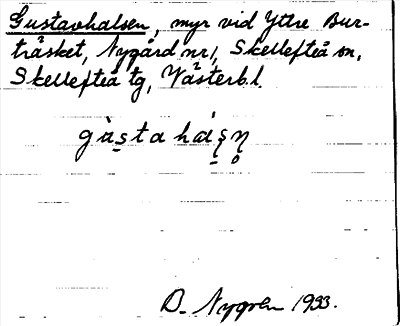 Gustavhalsen, myr vid Yttre Bur-
träsket, Nygård nr 1, Skellefteå sn,
Skellefteå tg, Västerb. l.
D. Nygren 1933.